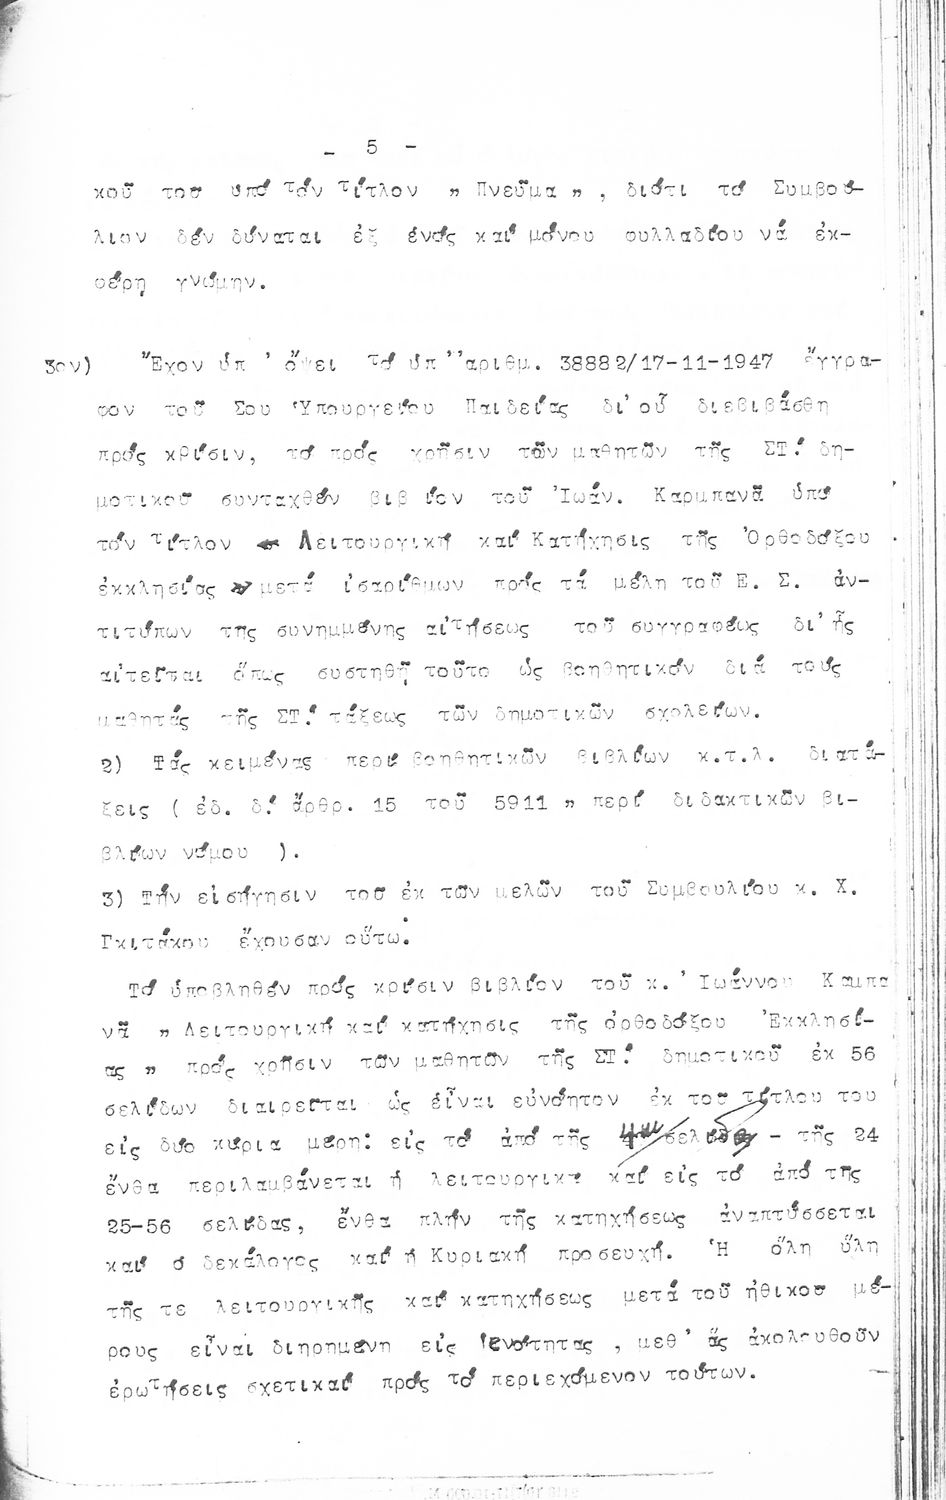 - 5 -
κοῦ του ὑπό τόν τίτλον „ Πνεῦμα „ , διότι τό Συμβού-
λιον δέν δύναται ἐξ ἑνός καί μόνου φυλλαδίου νά ἐκ-
φέρῃ γνώμην.
3ον) Ἔχον ὑπ' ὄψει τό ὑπ' ἀριθμ. 38882/17-11-1947 ἔγγρα-
φον τοῦ Σου Ὑπουργείου Παιδείας δι' οὗ διεβιβάσθη
πρός κρίσιν, τό πρός χρῆσιν τῶν μαθητῶν τῆς ΣΤ! δη-
μοτικοῦ συνταχθέν βιβ ίον τοῦ Ἰωάν. Καρμπανᾶ ὑπό
τόν τίτλον Λειτουργική καί Κατήχησις τῆς Ὀρθοδόξου
ἐκκλησίας μετά ἰσαρίθμων πρός τά μέλη τοῦ Ε. Σ. ἀν-
τιτύπων της συνημμένης αἰτήσεως τοῦ συγγραφέως δι' ἧς
αἰτεῖται ὅπως συστηθῇ τοῦτο ὡς βοηθητικόν διά τούς
μαθητάς τῆς ΣΤ! τάξεως τῶν δημοτικῶν σχολείων.
2) Τάς κειμένας περί βοηθητικῶν βιβλίων κ.τ.λ. διατά-
ξεις ( ἐδ. δ! ἄρθρ. 15 τοῦ 5911 „ περί διδακτικῶν βι-
βλίων νόμου ).
3) Τήν εἰσήγησιν του ἐκ τῶν μελῶν τοῦ Συμβουλίου κ. Χ.
Γκιτάκου ἔχουσαν οὕτω:
Τό ὑποβληθέν πρός κρίσιν βιβλίον τοῦ κ. Ἰωάννου Καμπα
νᾶ „ Λειτουργική καί κατήχησις τῆς ὀρθοδόξου Ἐκκλησί-
ας „ πρός χρῆσιν τῶν μαθητῶν τῆς ΣΤ! δημοτικοῦ ἐκ 56
σελίδων διαιρεῖται ὡς εἶναι εὐνόητον ἐκ του τίτλου του
εἰς δυο κύρια μέρη: εἰς τό ἀπό τῆς 4ης σελίδα - τῆς 24
ἔνθα περιλαμβάνεται ἡ λειτουργικη καί εἰς τό ἀπό της
25-56 σελίδας, ἔνθα πλήν τῆς κατηχήσεως ἀναπτύσσεται
καί ὁ δεκάλογος καί ἡ Κυριακή προσευχή. Ἡ ὅλη ὕλη
τῆς τε λειτουργικῆς καί κατηχήσεως μετά τοῦ ἠθικου μέ-
ρους εἶναι διηρημένη εἰς ἑνότητας , μεθ' ἅς ἀκολουθοῦν
ἐρωτήσεις σχετικαί πρός τό περιεχόμενον τούτων.